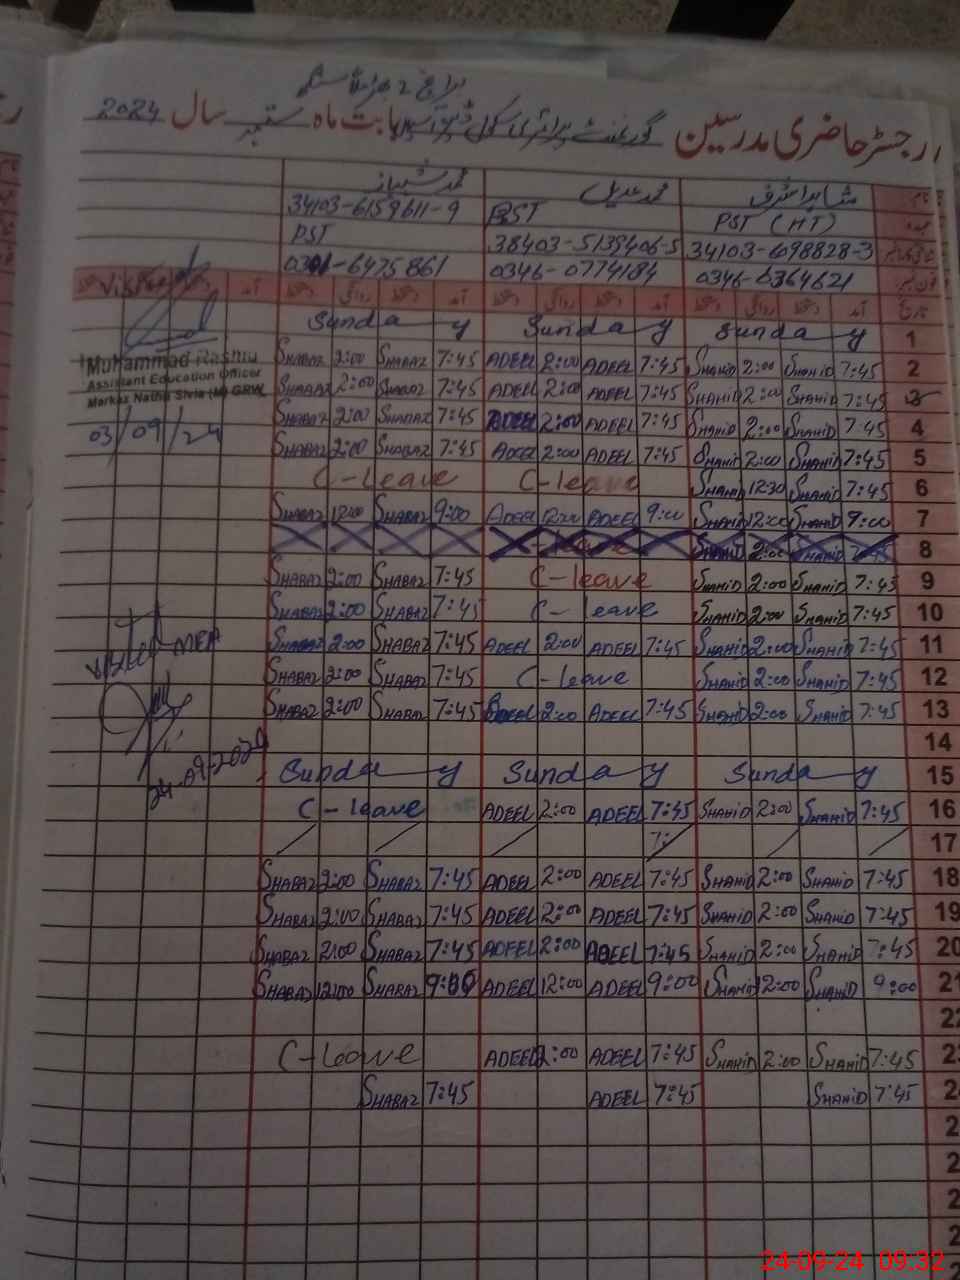 رجسٹر حاضری مدرسین گورنمنٹ پرائمری سکول بابت ماہ ستمبر سال 2024
شاہد اشرف محمد عدیل محمد شہباز
PST (HT) PST 34103-6159611-9
34103-6098828-3 38403-5139406-5 PST
0346-6364621 0346-0774184 0301-6475861
Visited
Sunday Sunday Sunday 1
SHABAZ 2:00 SHABAZ 7:45 ADEEL 2:00 ADEEL 7:45 SHAHID 2:00 SHAHID 7:45 2
Muhammad Rashid
Assistant Education Officer
Markaz (M) GRW
SHABAZ 2:00 SHABAZ 7:45 ADEEL 2:00 ADEEL 7:45 SHAHID 2:00 SHAHID 7:45 3
SHABAZ 2:00 SHABAZ 7:45 ADEEL 2:00 ADEEL 7:45 SHAHID 2:00 SHAHID 7:45 4
03/09/24
SHABAZ 2:00 SHABAZ 7:45 ADEEL 2:00 ADEEL 7:45 SHAHID 2:00 SHAHID 7:45 5
C-Leave C-leave SHAHID 12:30 SHAHID 7:45 6
SHABAZ 12:00 SHABAZ 9:00 ADEEL 12:00 ADEEL 9:00 SHAHID 12:00 SHAHID 9:00 7
SHAHID 2:00 SHAHID 7:45 8
SHABAZ 2:00 SHABAZ 7:45 C-leave SHAHID 2:00 SHAHID 7:45 9
SHABAZ 2:00 SHABAZ 7:45 C-leave SHAHID 2:00 SHAHID 7:45 10
SHABAZ 2:00 SHABAZ 7:45 ADEEL 2:00 ADEEL 7:45 SHAHID 2:00 SHAHID 7:45 11
Visited MEA
SHABAZ 2:00 SHABAZ 7:45 C-leave SHAHID 2:00 SHAHID 7:45 12
SHABAZ 2:00 SHABAZ 7:45 ADEEL 2:00 ADEEL 7:45 SHAHID 2:00 SHAHID 7:45 13
14
24-09-2024
Sunday Sunday Sunday 15
C-leave ADEEL 2:00 ADEEL 7:45 SHAHID 2:00 SHAHID 7:45 16
7: 17
SHABAZ 2:00 SHABAZ 7:45 ADEEL 2:00 ADEEL 7:45 SHAHID 2:00 SHAHID 7:45 18
SHABAZ 2:00 SHABAZ 7:45 ADEEL 2:00 ADEEL 7:45 SHAHID 2:00 SHAHID 7:45 19
SHABAZ 2:00 SHABAZ 7:45 ADEEL 2:00 ADEEL 7:45 SHAHID 2:00 SHAHID 7:45 20
SHABAZ 12:00 SHABAZ 9:00 ADEEL 12:00 ADEEL 9:00 SHAHID 12:00 SHAHID 9:00 21
22
C-Leave ADEEL 2:00 ADEEL 7:45 SHAHID 2:00 SHAHID 7:45 23
SHABAZ 7:45 ADEEL 7:45 SHAHID 7:45 2
2
2
2
2
24-09-24 09:32